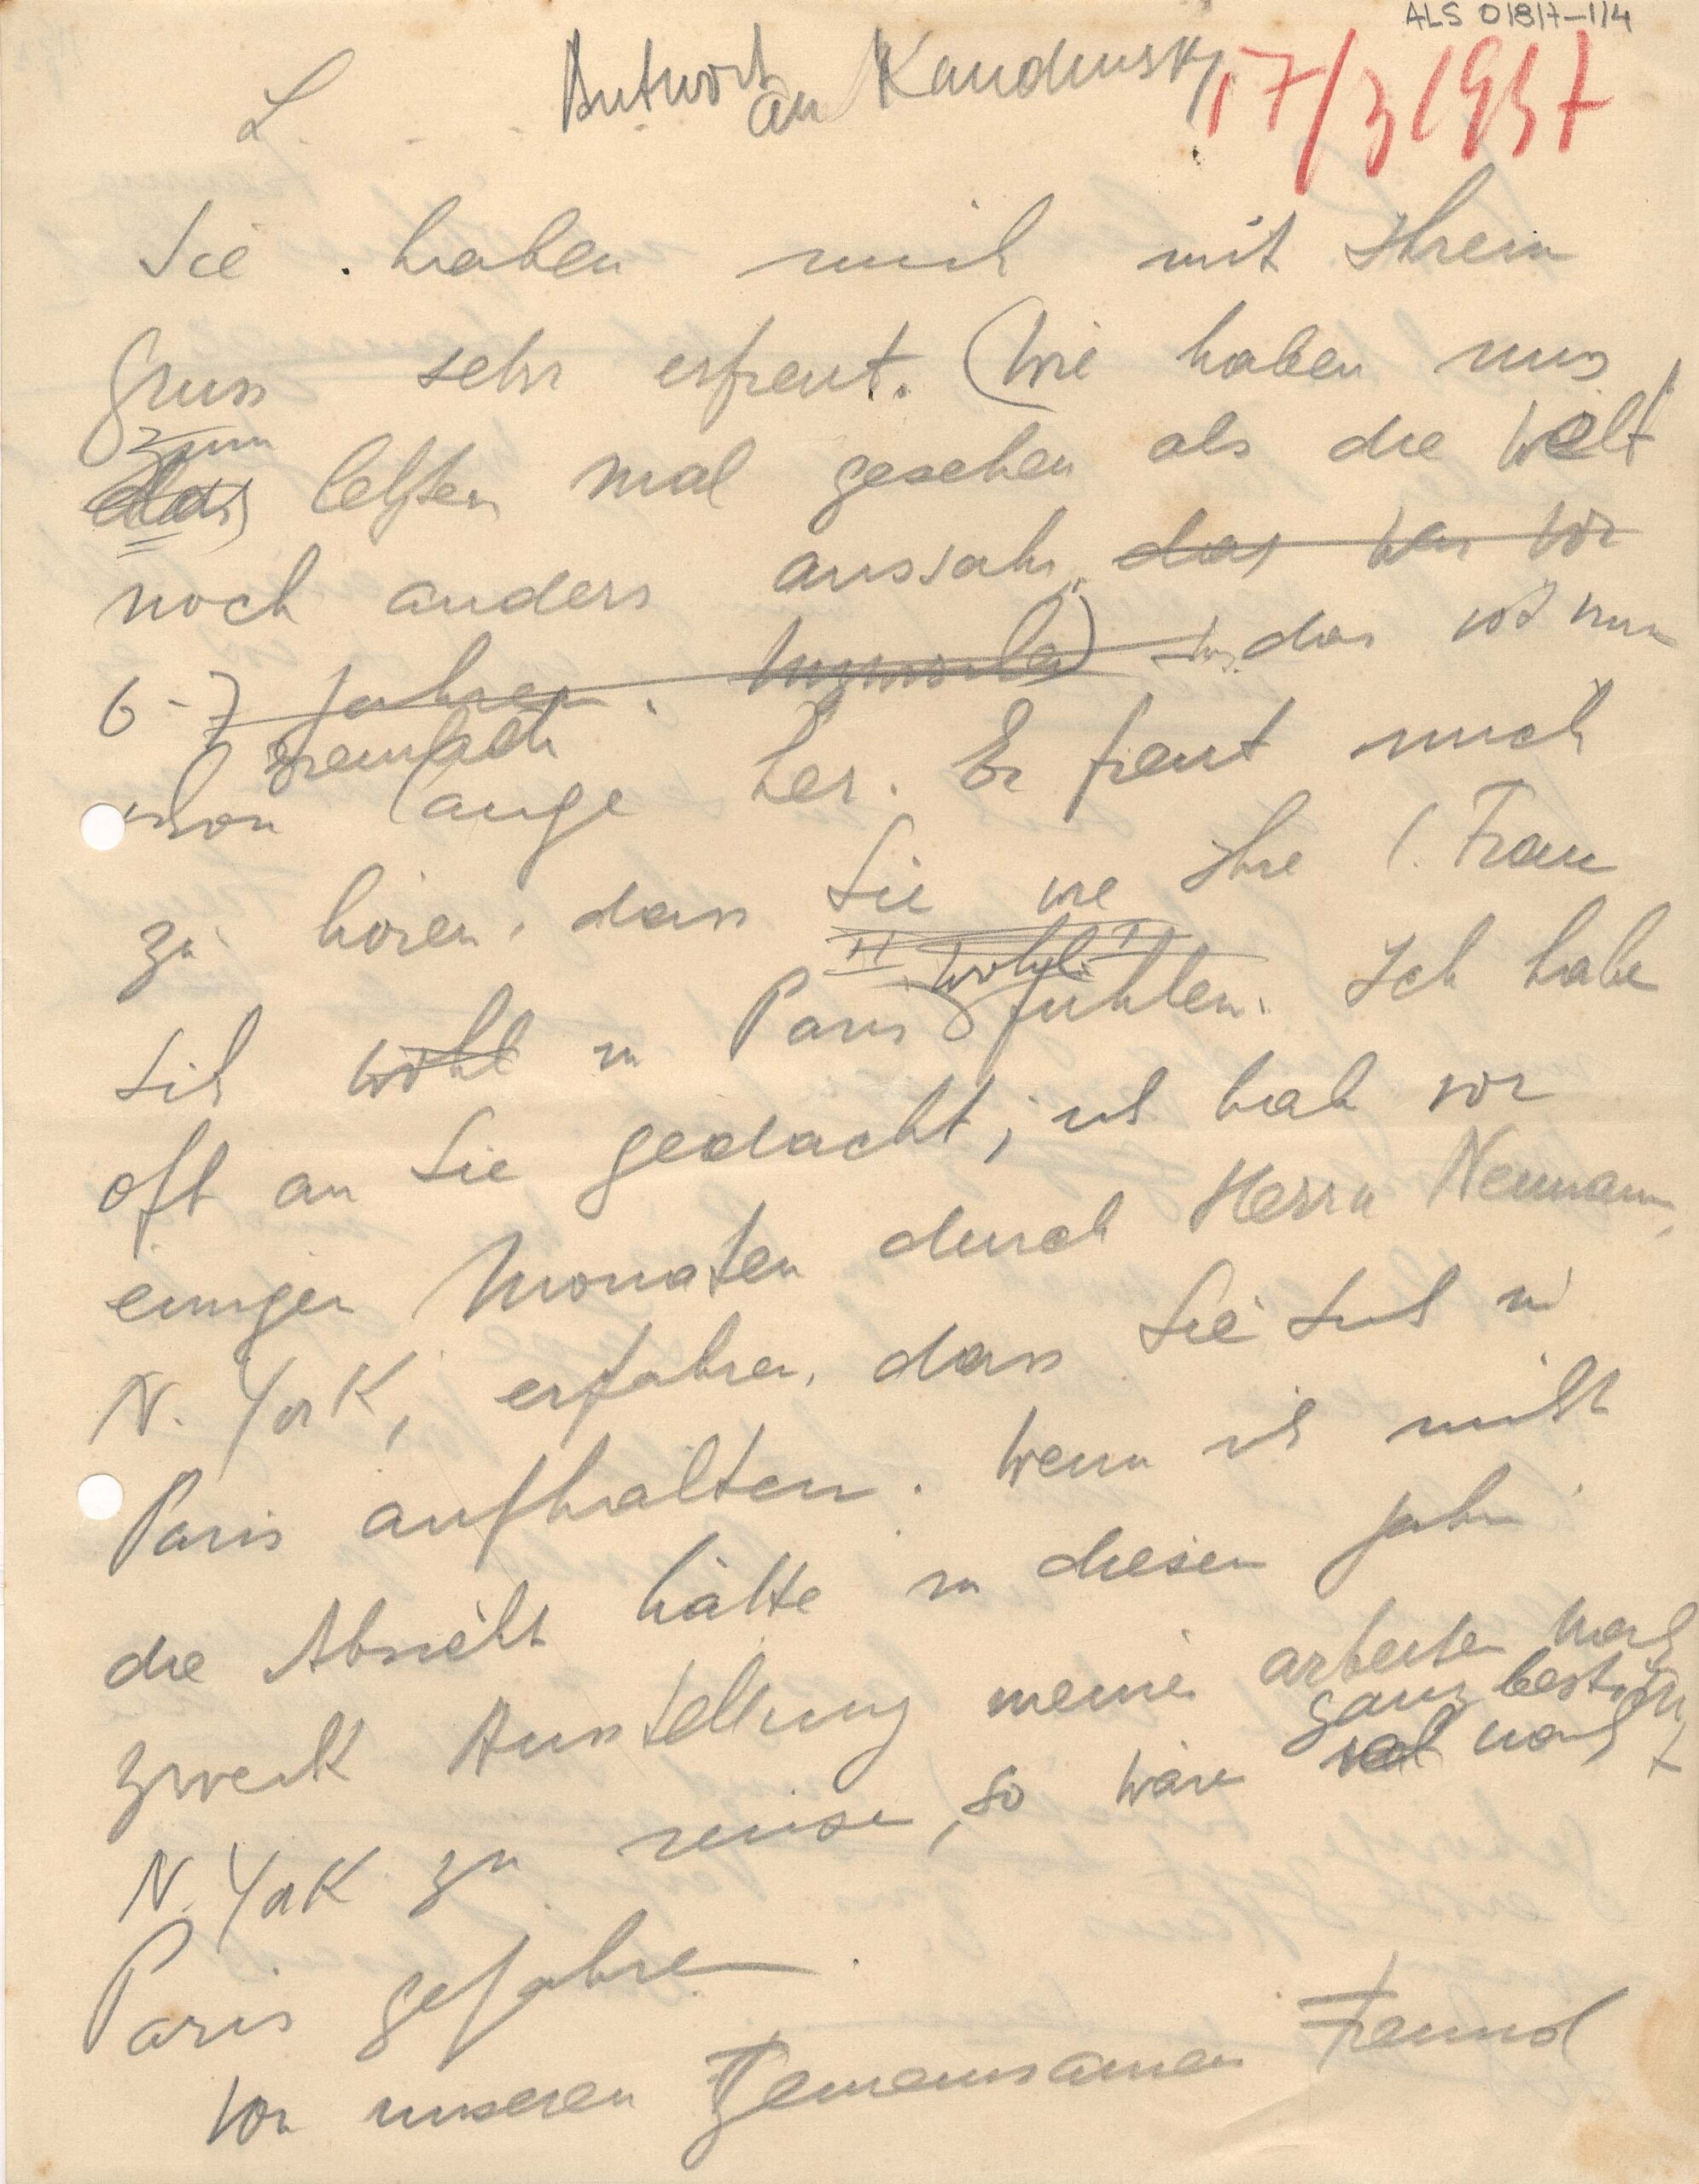 ALS 018/7-1/4
Antwort an Kandinsky 17/3 1937
L
Sie haben mich mit Ihrem
Gruss sehr erfreut. (Wir haben uns
zum
das letzten Mal gesehen als die Welt
noch anders aussah, das war vor
6-7 Jahren. das ist nun
ziemlich
schon lange her. Es freut mich
zu hören, dass Sie wie Ihre l. Frau
wohl
sich wohl in Paris fühlen. Ich habe
oft an Sie gedacht, ich hab vor
einigen Monaten durch Herrn Neumann,
N. York, erfahren, dass Sie sich in
Paris aufhalten. Wenn ich nicht
die Absicht hätte in diesen Jahr
zweck Ausstellung meiner arbeiten nach
ganz bestimmt
N. York zu reisen, so wäre ich nach
Paris gefahren.
Von unseren Gemeinsamen Freund